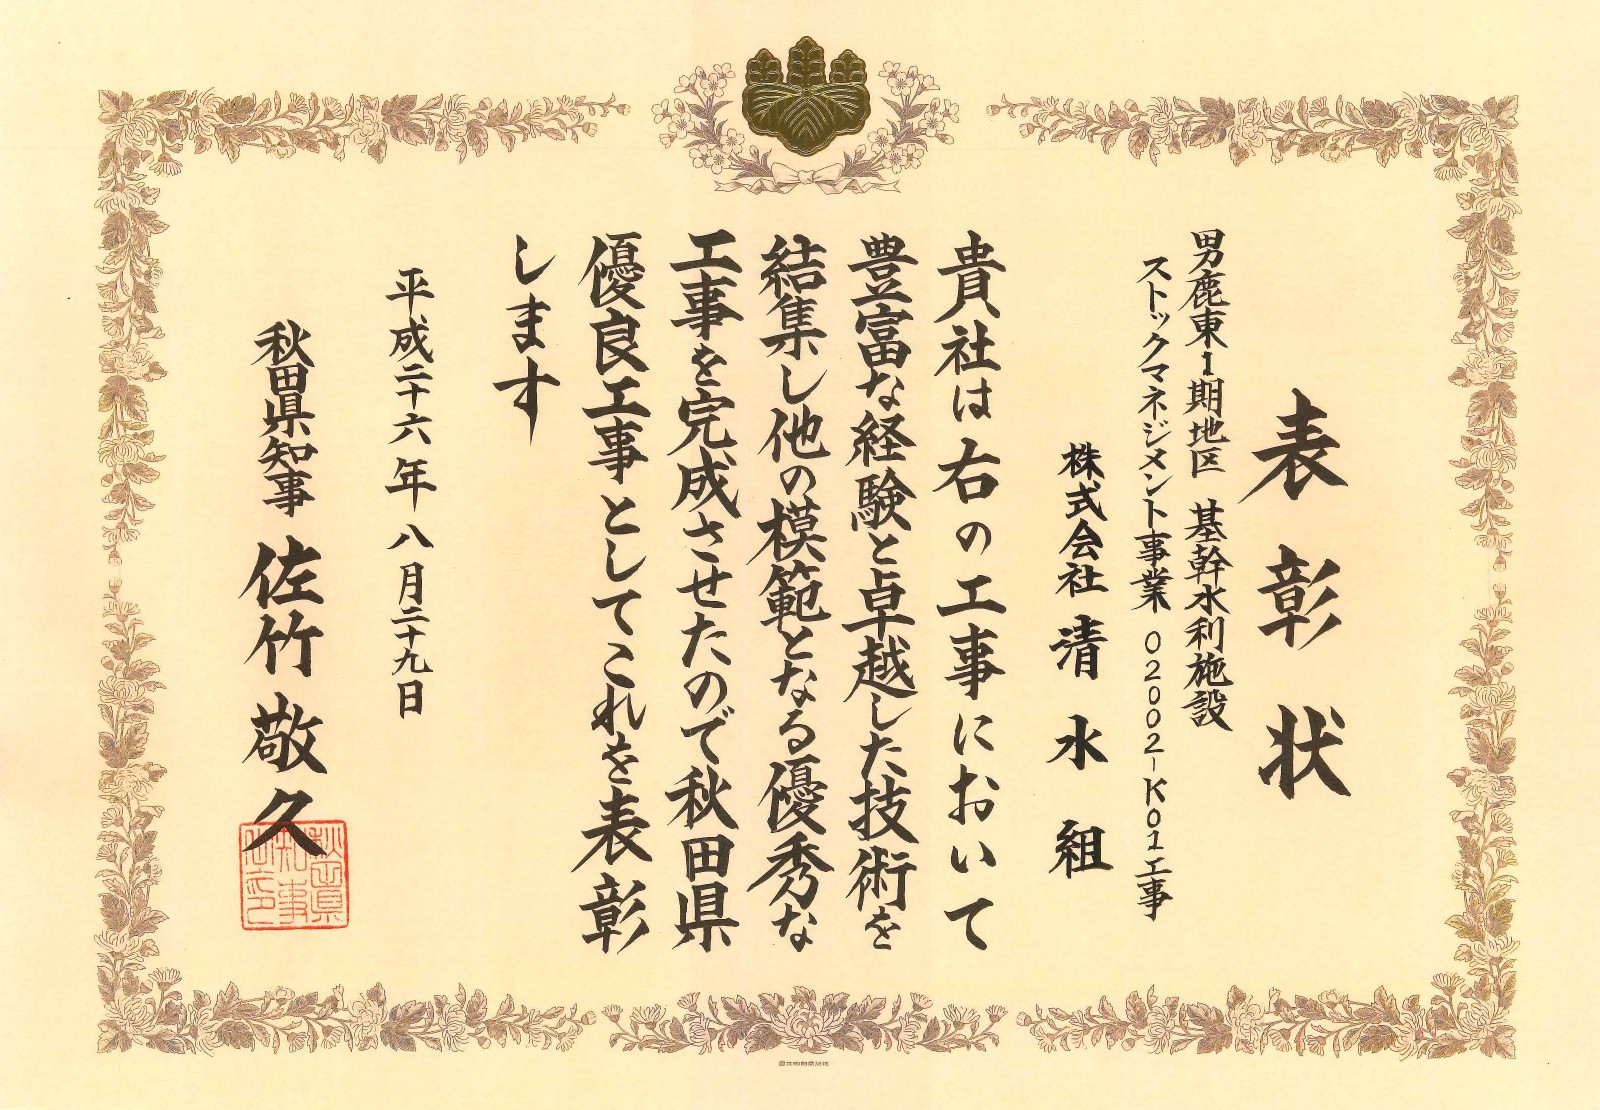 表彰状
男鹿東1期地区 基幹水利施設
ストックマネジメント事業 02002-K01工事
株式会社 清水組
貴社は右の工事において
豊富な経験と卓越した技術を
結集し他の模範となる優秀な
工事を完成させたので秋田県
優良工事としてこれを表彰
します
平成二十六年八月二十九日
秋田県知事 佐竹敬久
秋田県知事之印